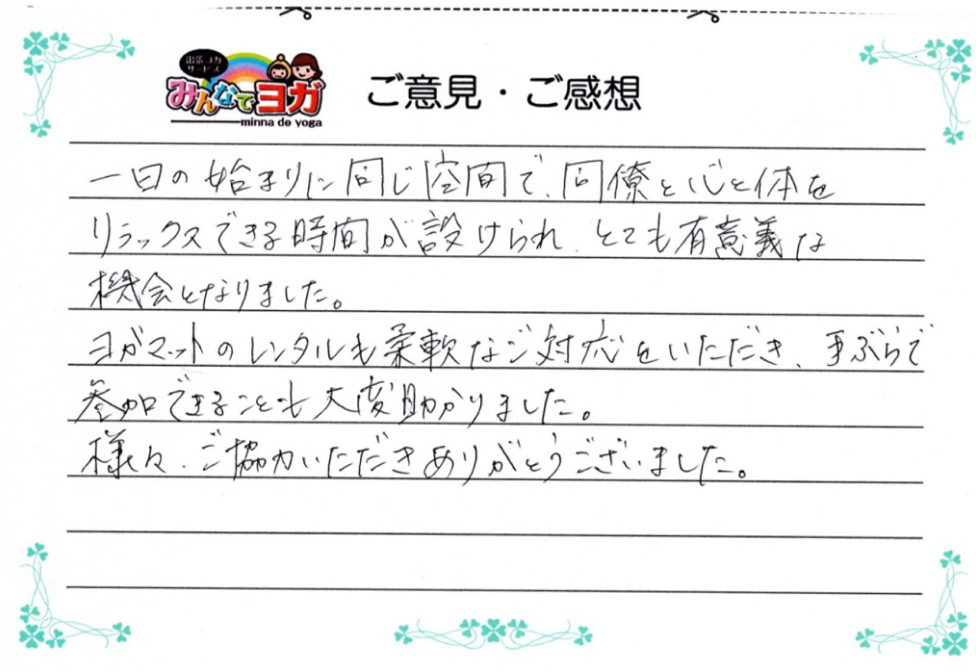 出張ヨガ
サービス
みんなでヨガ
minna de yoga
ご意見・ご感想
一日の始まりに同じ空間で、同僚と心と体を
リラックスできる時間が設けられ、とても有意義な
機会となりました。
ヨガマットのレンタルも柔軟なご対応をいただき、手ぶらで
参加できることも大変助かりました。
様々、ご協力いただきありがとうございました。